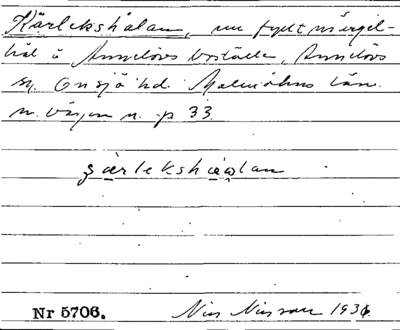 Kärlekshålan, nu fyllt märgel-
hål å Annelövs boställe, Annelövs
sn. Onsjö hd. Malmöhus län.
n. vägen n. p 33.
ʒärlekshåɷlan
Nr 5706. Nils Nilsson 1936.